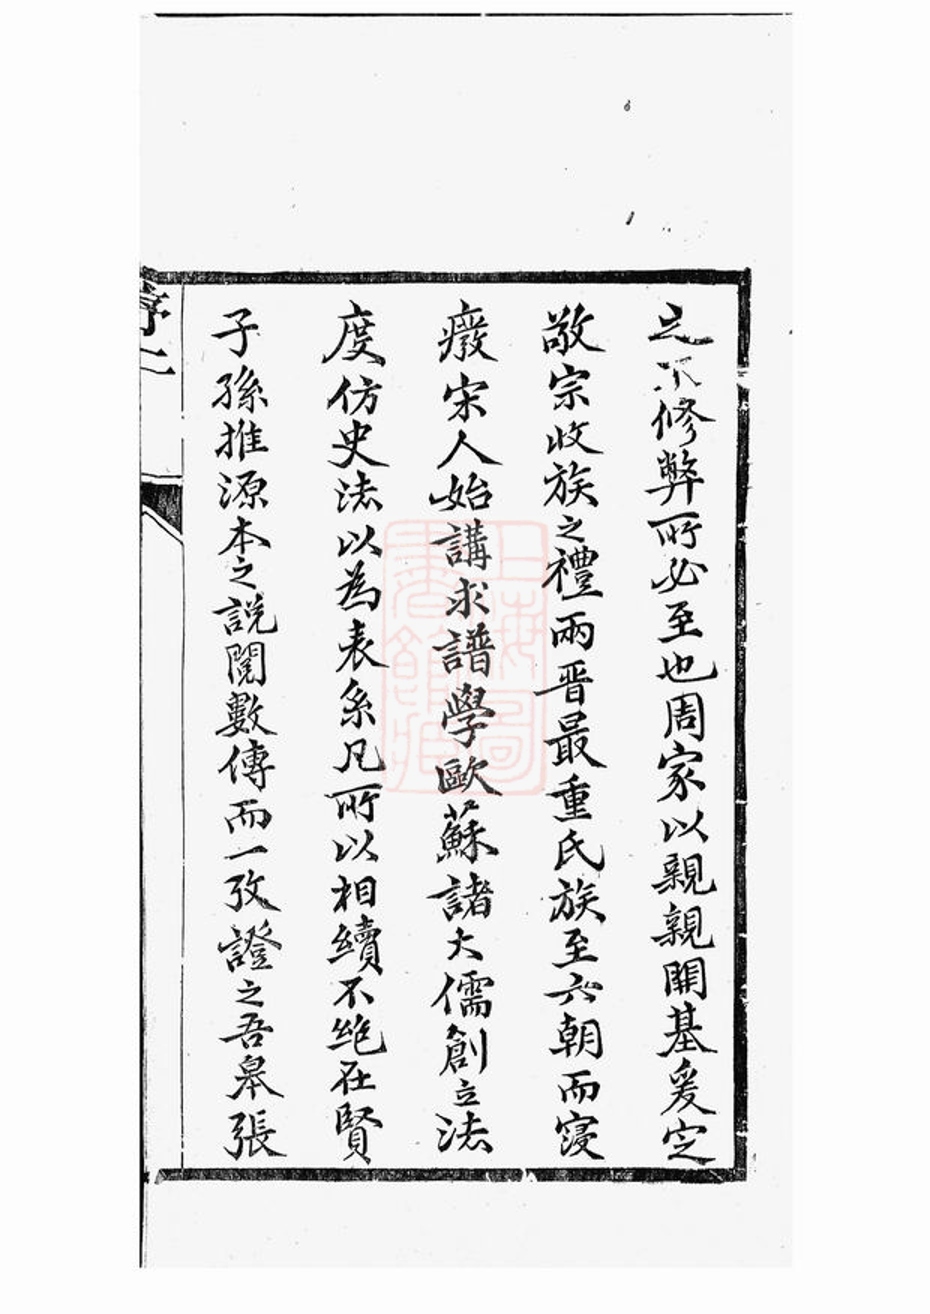 之不修弊所必至也周家以親親開基爰定
敬宗收族之禮兩晉最重氏族至六朝而寖
癈宋人始講求譜學歐蘇諸大儒創立法
度仿史法以為表系凡所以相續不絶在賢
子孫推源本之説閲數傳而一攷證之吾皋張
序二
上海圖書館藏